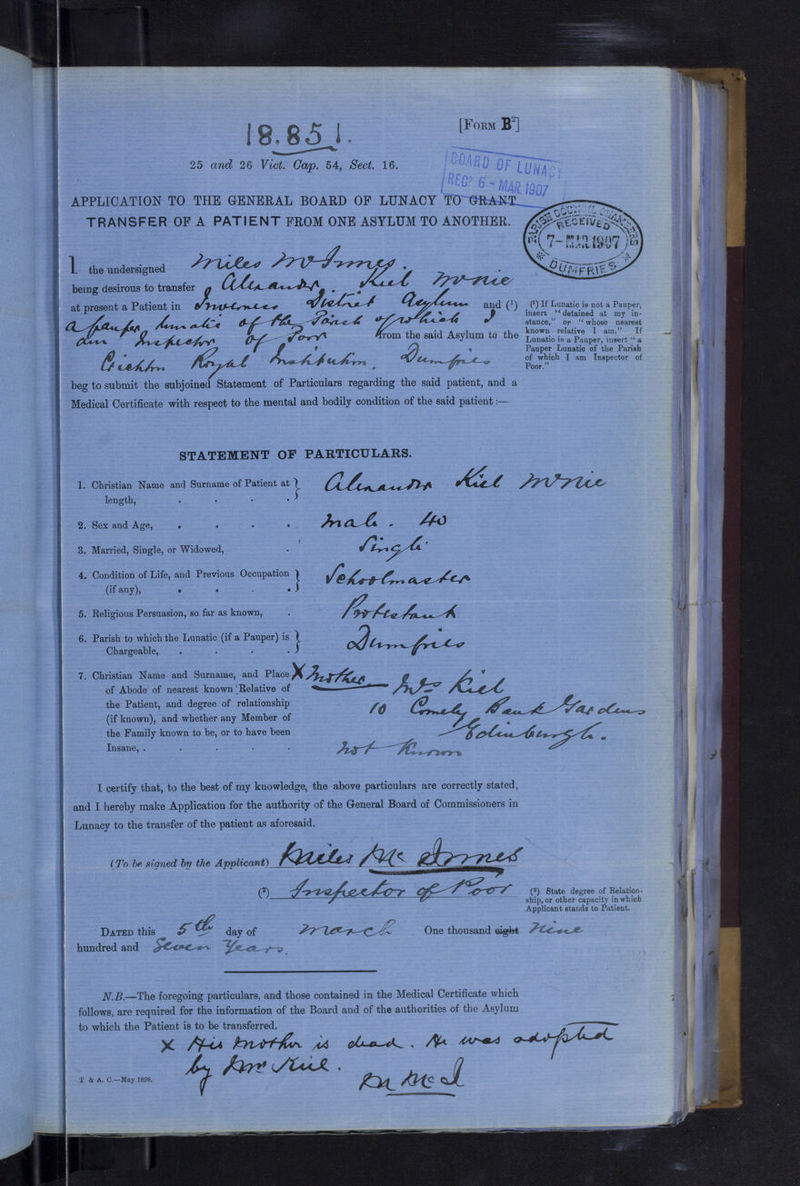 18,851.
[FORM B²]
25 and 26 Vict. Cap. 54, Sect. 16.
BOARD OF LUNACY
RECD 6 - MAR. 1907
APPLICATION TO THE GENERAL BOARD OF LUNACY TO GRANT
TRANSFER OF A PATIENT FROM ONE ASYLUM TO ANOTHER.
PARISH COUNCIL CHAMBERS
RECEIVED
7- MAR 1907
DUMFRIES
I the undersigned Miles McInnes.
being desirous to transfer Alexander Kiel McNie
at present a Patient in Inverness District Asylum and (¹)
a pauper lunatic of the Parish of which I
am Inspector of Poor from the said Asylum to the
Crichton Royal Institution, Dumfries
beg to submit the subjoined Statement of Particulars regarding the said patient, and a
Medical Certificate with respect to the mental and bodily condition of the said patient:—
(¹) If Lunatic is not a Pauper,
insert "detained at my in-
stance," or "whose nearest
known relative I am." If
Lunatic is a Pauper, insert "a
Pauper Lunatic of the Parish
of which I am Inspector of
Poor."
STATEMENT OF PARTICULARS.
1. Christian Name and Surname of Patient at length, Alexander Kiel McNie
2. Sex and Age, Male. 40
3. Married, Single, or Widowed, Single
4. Condition of Life, and Previous Occupation (if any), Schoolmaster
5. Religious Persuasion, so far as known, Protestant
6. Parish to which the Lunatic (if a Pauper) is Chargeable, Dumfries
7. Christian Name and Surname, and Place
of Abode of nearest known Relative of
the Patient, and degree of relationship
(if known), and whether any Member of
the Family known to be, or to have been
Insane,
X Mother Mrs Kiel
10 Comely Bank Gardens
Edinburgh.
Not Known
I certify that, to the best of my knowledge, the above particulars are correctly stated,
and I hereby make Application for the authority of the General Board of Commissioners in
Lunacy to the transfer of the patient as aforesaid.
(To be signed by the Applicant) Miles McInnes
(²) Inspector of Poor
(²) State degree of Relation-
ship, or other capacity in which
Applicant stands to Patient.
DATED this 5th day of March One thousand eight Nine
hundred and Seven Years.
N.B.—The foregoing particulars, and those contained in the Medical Certificate which
follows, are required for the information of the Board and of the authorities of the Asylum
to which the Patient is to be transferred.
X His Mother is dead. He was adopted
by Mrs Kiel.
M McI
T. & A. C.—May 1898.